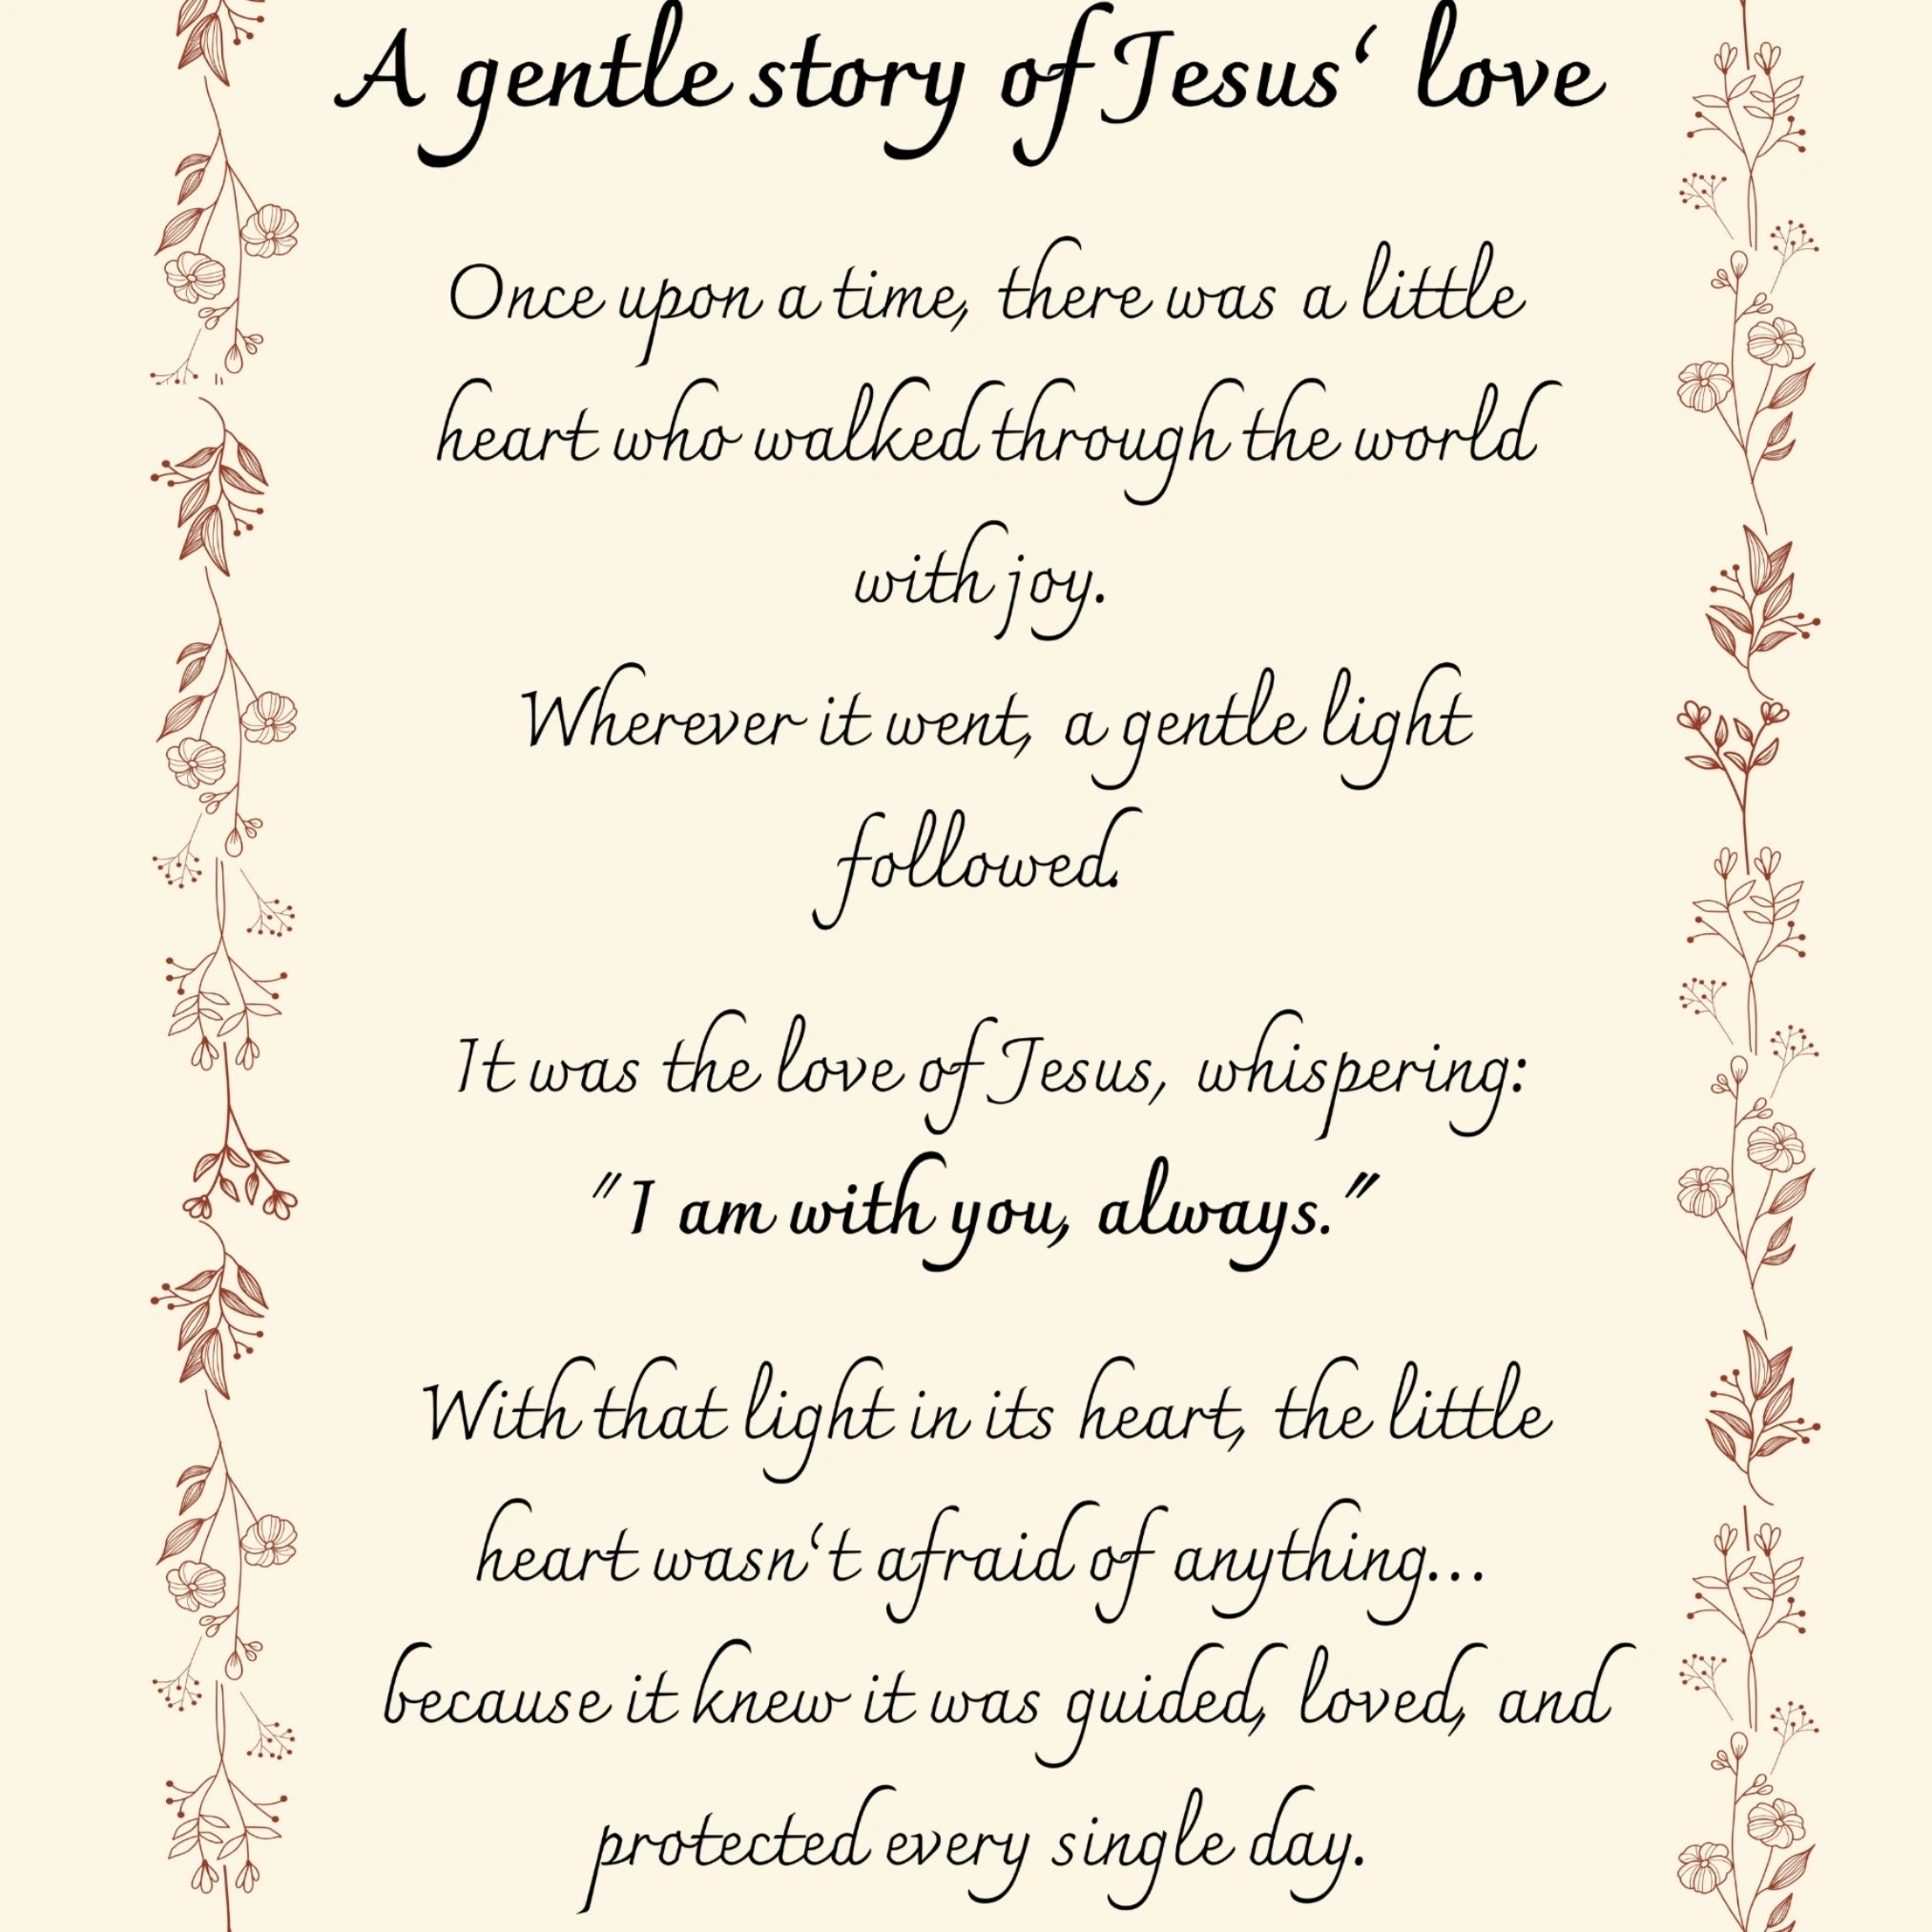 A gentle story of Jesus‘ love
Once upon a time, there was a little
heart who walked through the world
with joy.
Wherever it went, a gentle light
followed.
It was the love of Jesus, whispering:
"I am with you, always."
With that light in its heart, the little
heart wasn‘t afraid of anything...
because it knew it was guided, loved, and
protected every single day.